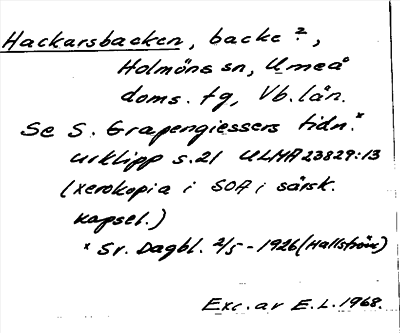 Hackarsbacken, backe?,
Holmöns sn, Umeå
doms. tg, Vb. län.
Se S. Grapengiessers tidn.ˣ
urklipp s. 21 ULMA 23829:13
(xerokopia i SOA i särsk.
kapsel.)
ˣ Sv. Dagbl. 2/5-1926 (Hallström)
Exc. av E. L. 1968.